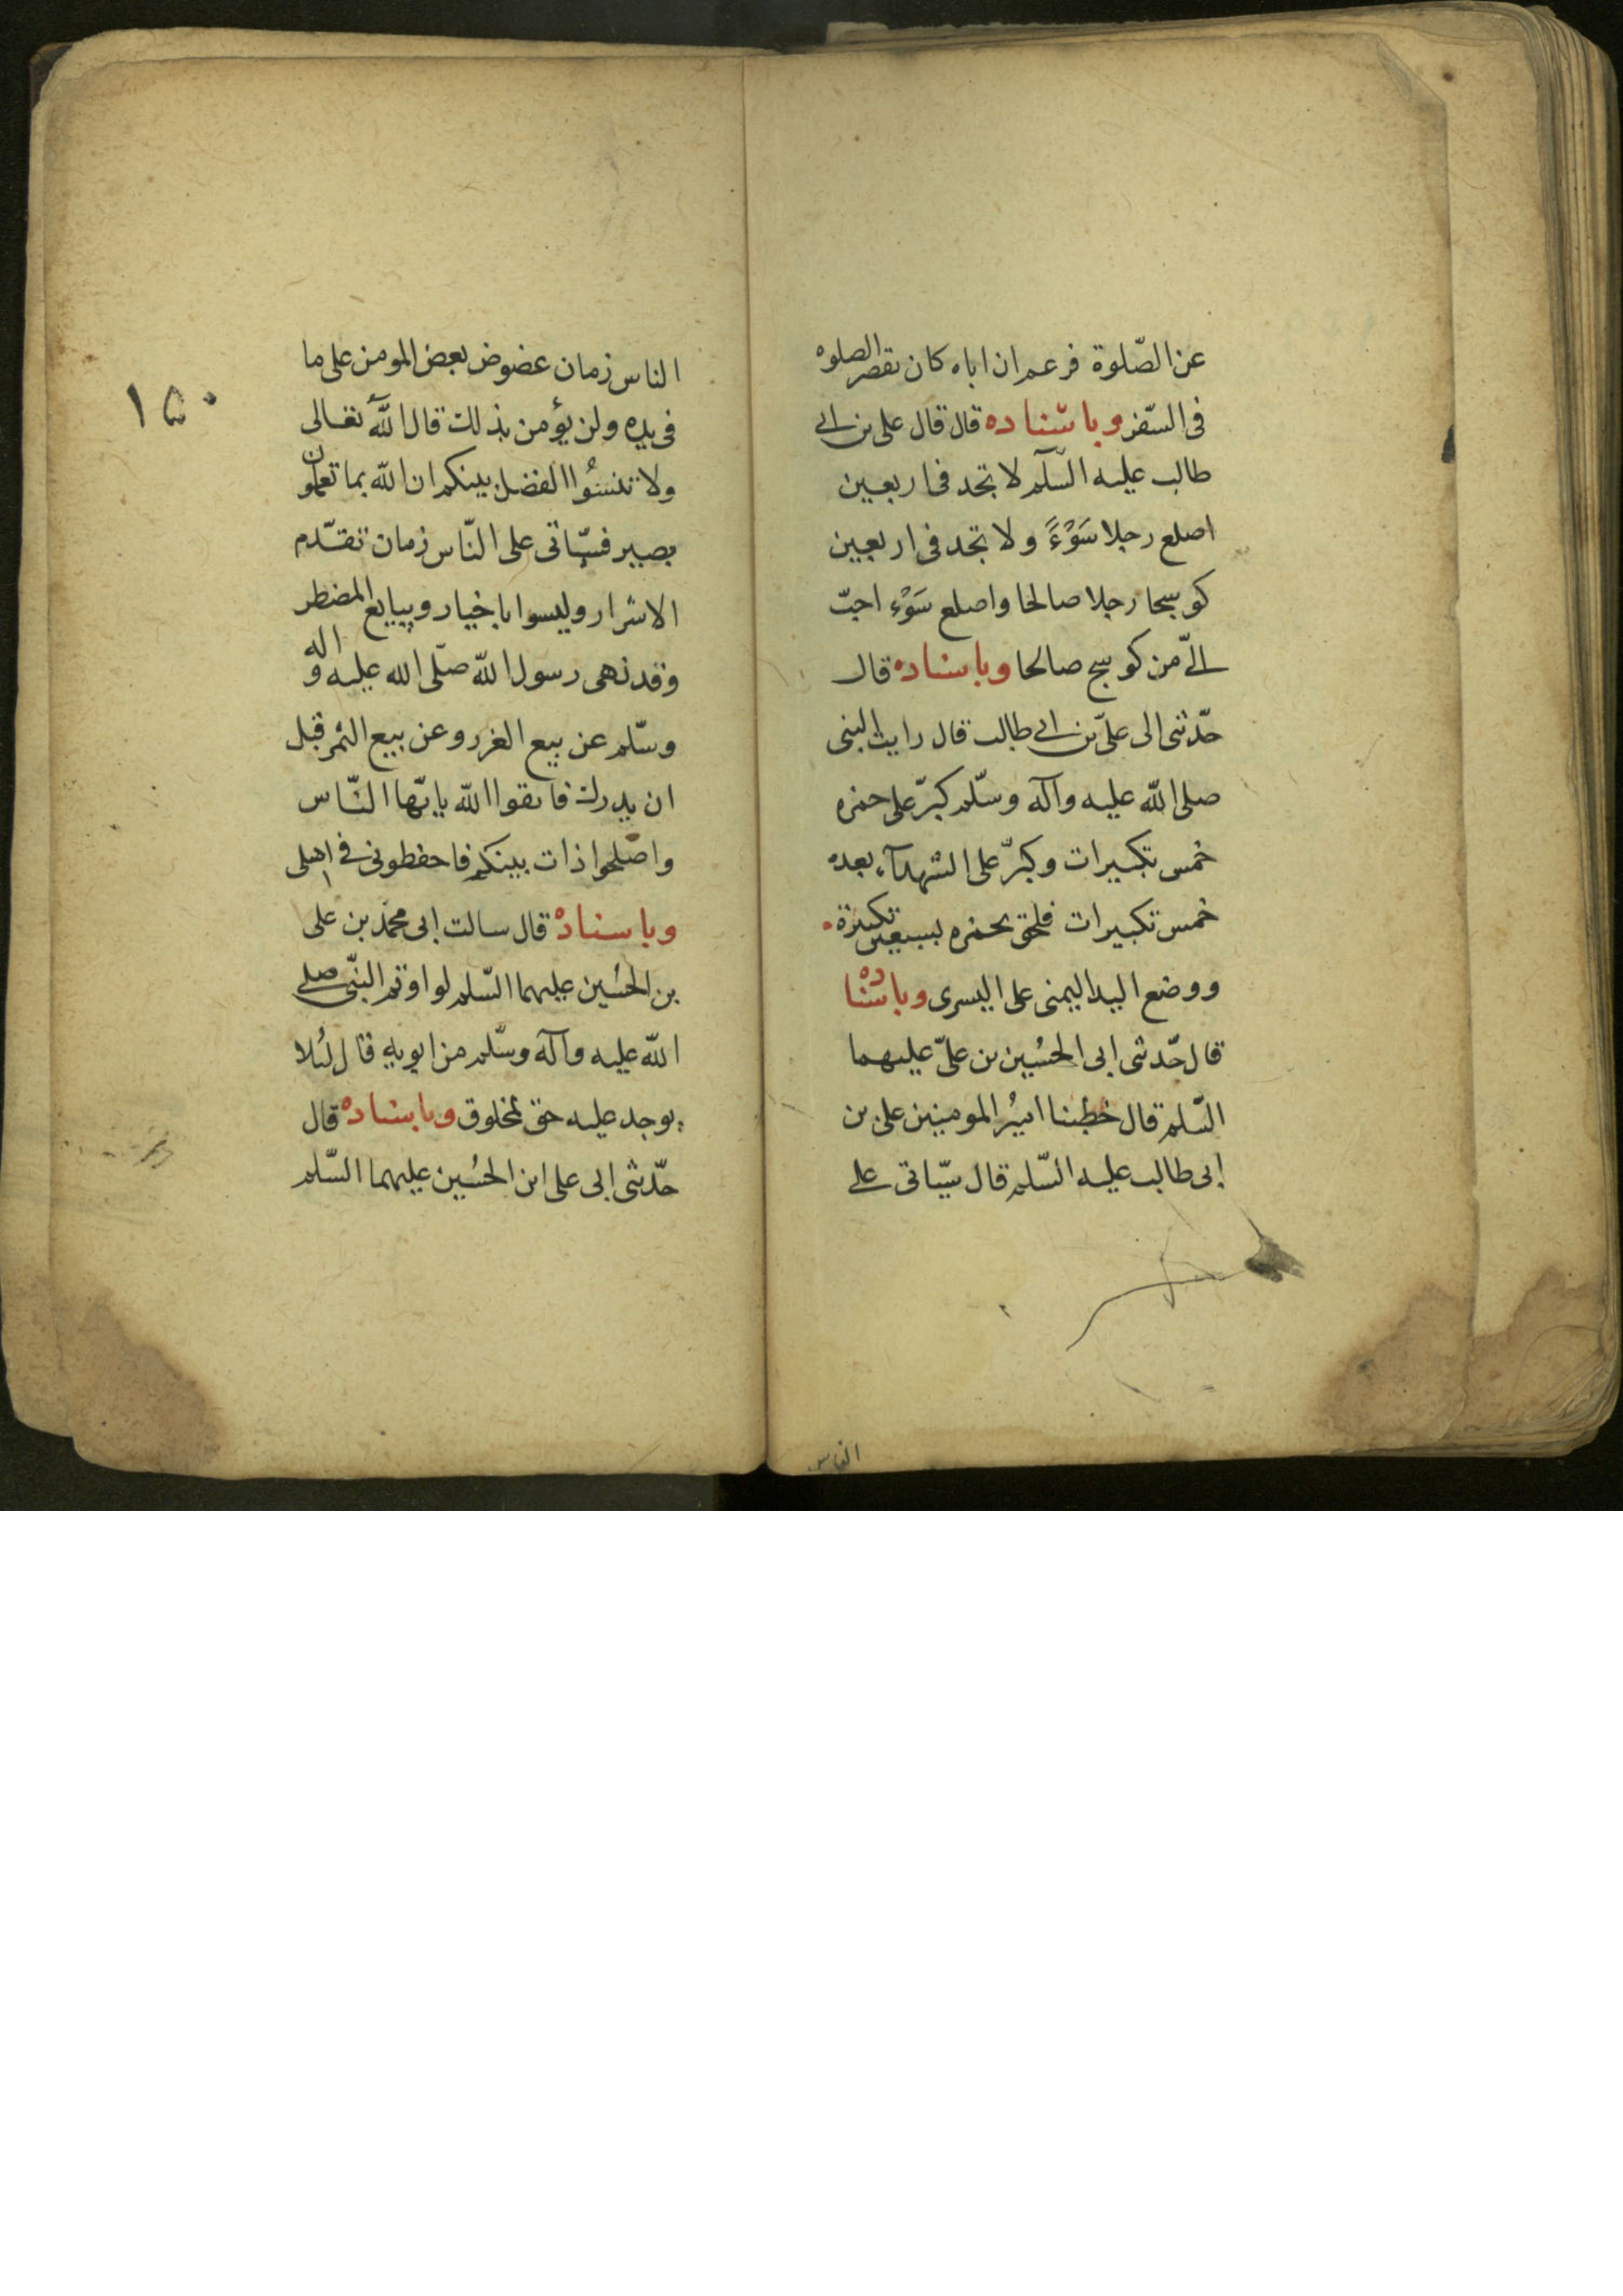 عن الصّلوة فزعم ان اباه كان يقصر الصلوه
فى السّفر وباسناده قال قال على بن ابى
طالب عليه السّلم لا تجد فى اربعين
اصلع رجلا سَوْءً ولا تجد فى اربعين
كوسجا رجلا صالحا واصلع سَوْء احبّ
الىّ من كوسج صالحا وباسناده قال
حدّثنى ابى علىّ بن ابى طالب قال رايت النبى
صلى الله عليه وآله وسلّم كبرّ على حمزه
خمس تكبيرات وكبرّ على الشهدآء بعده
خمس تكبيرات فلحق بحمزه بسبعين تكبيرة
ووضع اليد اليمنى على اليسرى وباسناده
قال حدّثنى ابى الحسُين بن علىّ عليهما
السّلم قال خطبنا اميُر المومنين على بن
ابى طالب عليه السّلم قال سيّاتى على
الناس
الناس زمان عضوض بعض المومن على ما
فى يده ولن يؤمن بذلك قال اللهّ تعالى
ولا تنسَوُا الفضل بينكم ان اللّه بما تعملون
بصير فسيّاتى على النّاس زمان تقدّم
الاشرار وليسوا باخيار ويبايع المضطر
وقد نهى رسول اللّه صلّى الله عليه واله
وسلّم عن بيع الغرر وعن بيع الثمر قبل
ان يدرك فاتقوا اللّه يايّها النّاس
واصلحوا ذات بينكم فاحفظونى فى اهلى
وباسناده قال سالت ابى محمد بن على
بن الحسُين عليهما السّلم لو اوتم النبّى صلى
اللّه عليه وآله وسلّم من ابويه قال لئلا
يوجد عليه حق لمخلوق وباسناده قال
حدّثنى ابى على ابن الحسُين عليهما السّلم
١٥٠